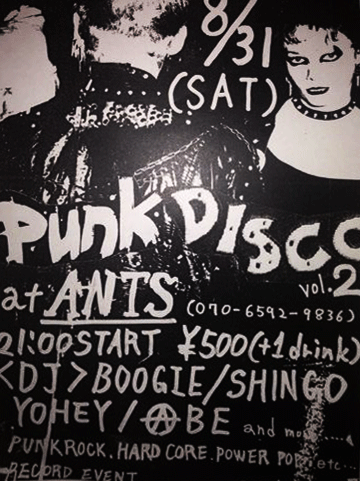 8/31
(SAT)
PUNK DISCO
vol.2
at ANTS (070-6592-9836)
21:00 START ¥500(+1drink)
<DJ> BOOGIE/SHINGO
YOHEY/ABE and more.....
PUNKROCK. HARD CORE. POWER POP. etc...
RECORD EVENT